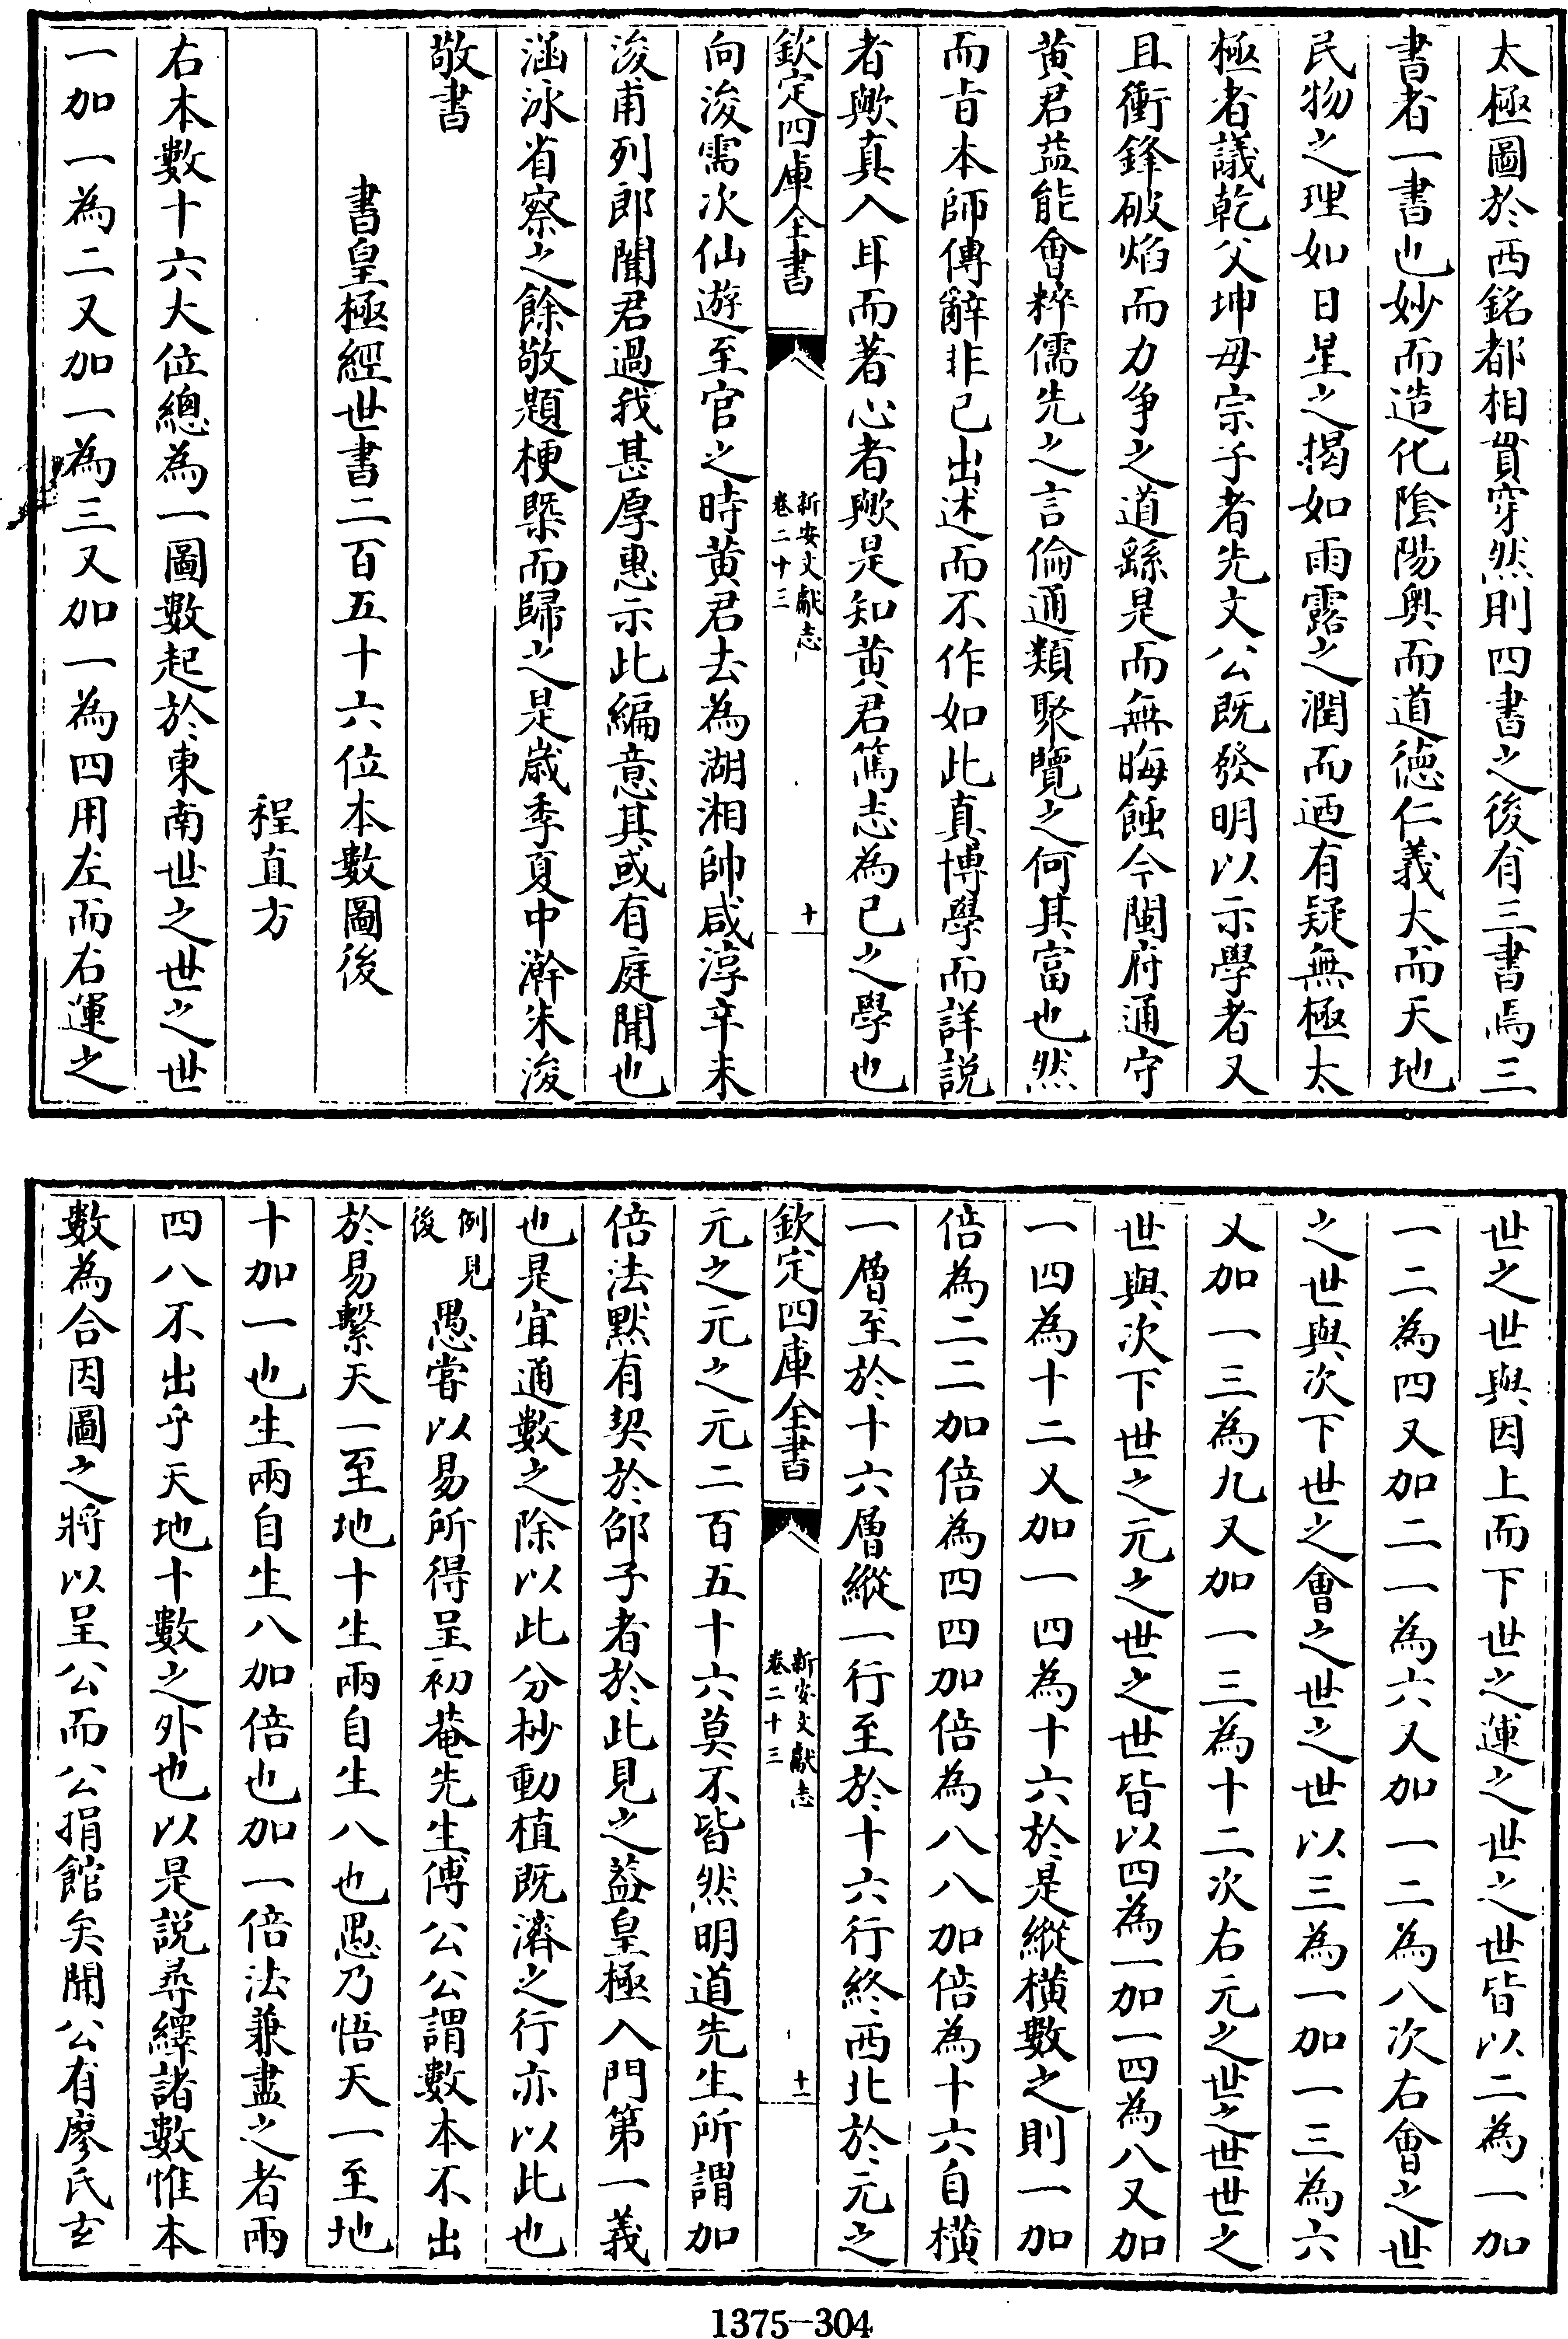 太極圖於西銘都相貫穿然則四書之後有三書焉三
書者一書也妙而造化陰陽奥而道德仁義大而天地
民物之理如日星之揭如雨露之潤而迺有疑無極太
極者議乾父坤母宗子者先文公既發明以示學者又
且衝鋒破焰而力争之道繇是而無晦蝕今閩府通守
黄君益能會粹儒先之言倫通類聚覽之何其富也然
而㫖本師傳辭非已出述而不作如此真博學而詳説
者歟真入耳而著心者歟是知黄君篤志為已之學也
欽定四庫全書
新安文獻志
卷二十三
十
向浚需次仙遊至官之時黄君去為湖湘帥咸淳辛未
浚甫列郎闈君過我甚厚惠示此編意其或有庭聞也
涵泳省察之餘敬題梗槩而歸之是歲季夏中澣朱浚
敬書
書皇極經世書二百五十六位本數圖後
程直方
右本數十六大位總為一圖數起於東南世之世之世
一加一為二又加一為三又加一為四用左而右運之
世之世與因上而下世之運之世之世皆以二為一加
一二為四又加二一為六又加一二為八次右會之世
之世與次下世之會之世之世以三為一加一三為六
又加一三為九又加一三為十二次右元之世之世世之
世與次下世之元之世之世皆以四為一加一四為八又加
一四為十二又加一四為十六於是縱橫數之則一加
倍為二二加倍為四四加倍為八八加倍為十六自橫
一層至於十六層縱一行至於十六行終西北於元之
欽定四庫全書
新安文獻志
卷二十三
十一
元之元之元二百五十六莫不皆然明道先生所謂加
倍法默有契於邵子者於此見之益皇極入門第一義
也是宜通數之除以此分杪動植既濟之行亦以此也
例見後 愚嘗以易所得呈初菴先生傅公公謂數本不出
於易繫天一至地十生兩自生八也愚乃悟天一至地
十加一也生兩自生八加倍也加一倍法兼盡之者兩
四八不出乎天地十數之外也以是説尋繹諸數惟本
數為合因圖之將以呈公而公捐館矣聞公有廖氏玄
1375-304